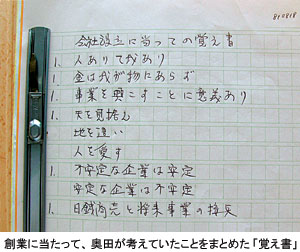 810818
会社設立に当っての覚え書
1. 人ありて我あり
1. 金は我が物にあらず
1. 事業を興こすことに意義あり
1. 天を見据え
地を這い
人を愛す
1. 不安定な企業は安定
安定な企業は不安定
1. 日銭商売と将来事業の接点
創業に当たって、奥田が考えていたことをまとめた「覚え書」